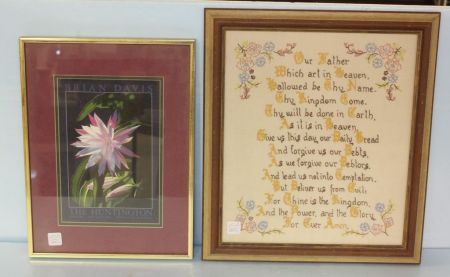 BRIAN DAVIS
THE HUNTINGTON
Our Father
Which art in Heaven,
Hallowed be Thy Name.
Thy Kingdom Come.
Thy will be done in Earth,
As it is in Heaven.
Give us this day our Daily Bread
And forgive us our Debts,
As we forgive our Debtors.
And lead us not into Temptation,
But Deliver us from Evil:
For Thine is the Kingdom,
And the Power, and the Glory,
For Ever Amen.